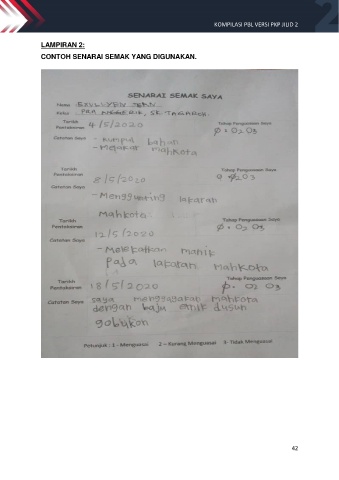 KOMPILASI PBL VERSI PKP JILID 2
LAMPIRAN 2:
CONTOH SENARAI SEMAK YANG DIGUNAKAN.
SENARAI SEMAK SAYA
Nama :
Kelas : PRA ANGGERIK, SK.
Tarikh Pentaksiran 4/5/2020 Tahap Penguasaan Saya
Catatan Saya -Kumpul bahan
-Melakar Mahkota
Tarikh Pentaksiran 8/5/2020 Tahap Penguasaan Saya
Catatan Saya
-Menggunting lakaran
Mahkota
Tarikh Pentaksiran 12/5/2020 Tahap Penguasaan Saya
Catatan Saya
-Melekatkan manik
Pada lakaran Mahkota
Tarikh Pentaksiran 18/5/2020 Tahap Penguasaan Saya
Catatan Saya saya menggayakan Mahkota
dengan baju etnik dusun
gobukon
Petunjuk : 1 - Menguasai 2 - Kurang Menguasai 3- Tidak Menguasai
42